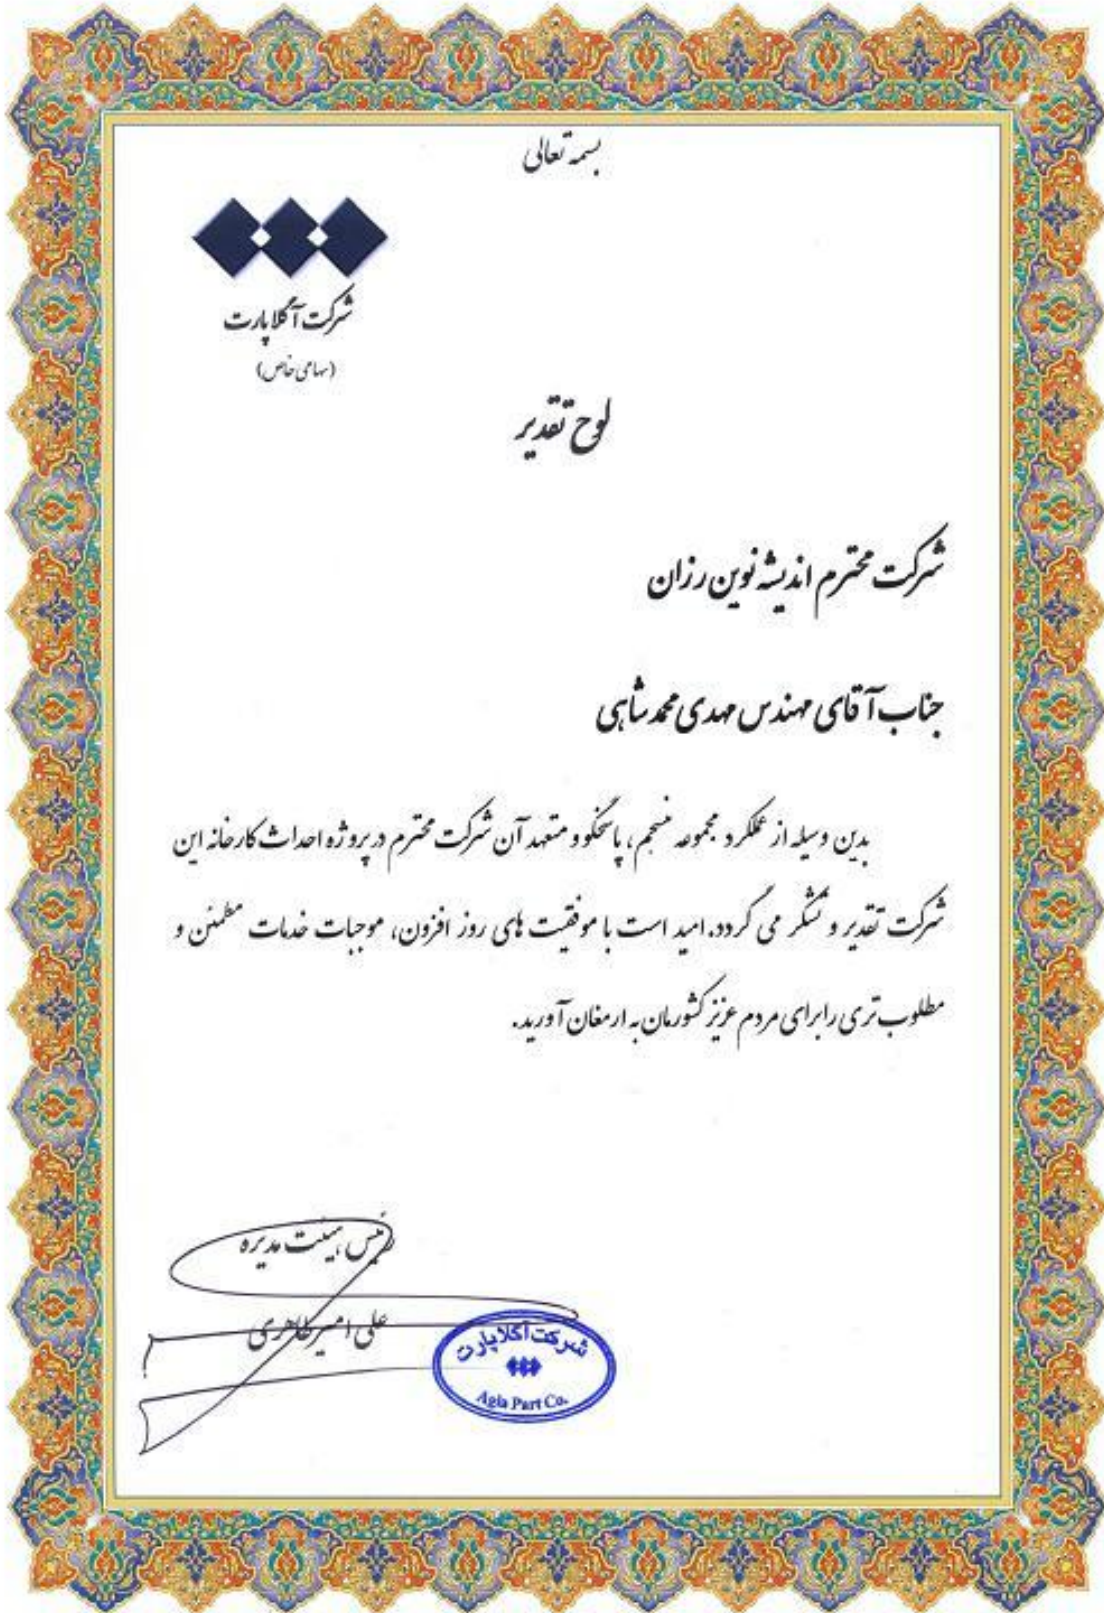 بسمه تعالی
شرکت آگلا پارت
(سهامی خاص)
لوح تقدیر
شرکت محترم اندیشه نوین رزان
جناب آقای مهندس مهدی محمدشاهی
بدین وسیله از عملکرد مجموعه منسجم، پاسخگو و متعهد آن شرکت محترم در پروژه احداث کارخانه این
شرکت تقدیر و تشکر می گردد. امید است با موفقیت های روز افزون، موجبات خدمات مطمئن و
مطلوب تری را برای مردم عزیز کشورمان به ارمغان آورید.
رئیس هیئت مدیره
علی امیرطاهری
شرکت آگلاپارت
Agla Part Co.